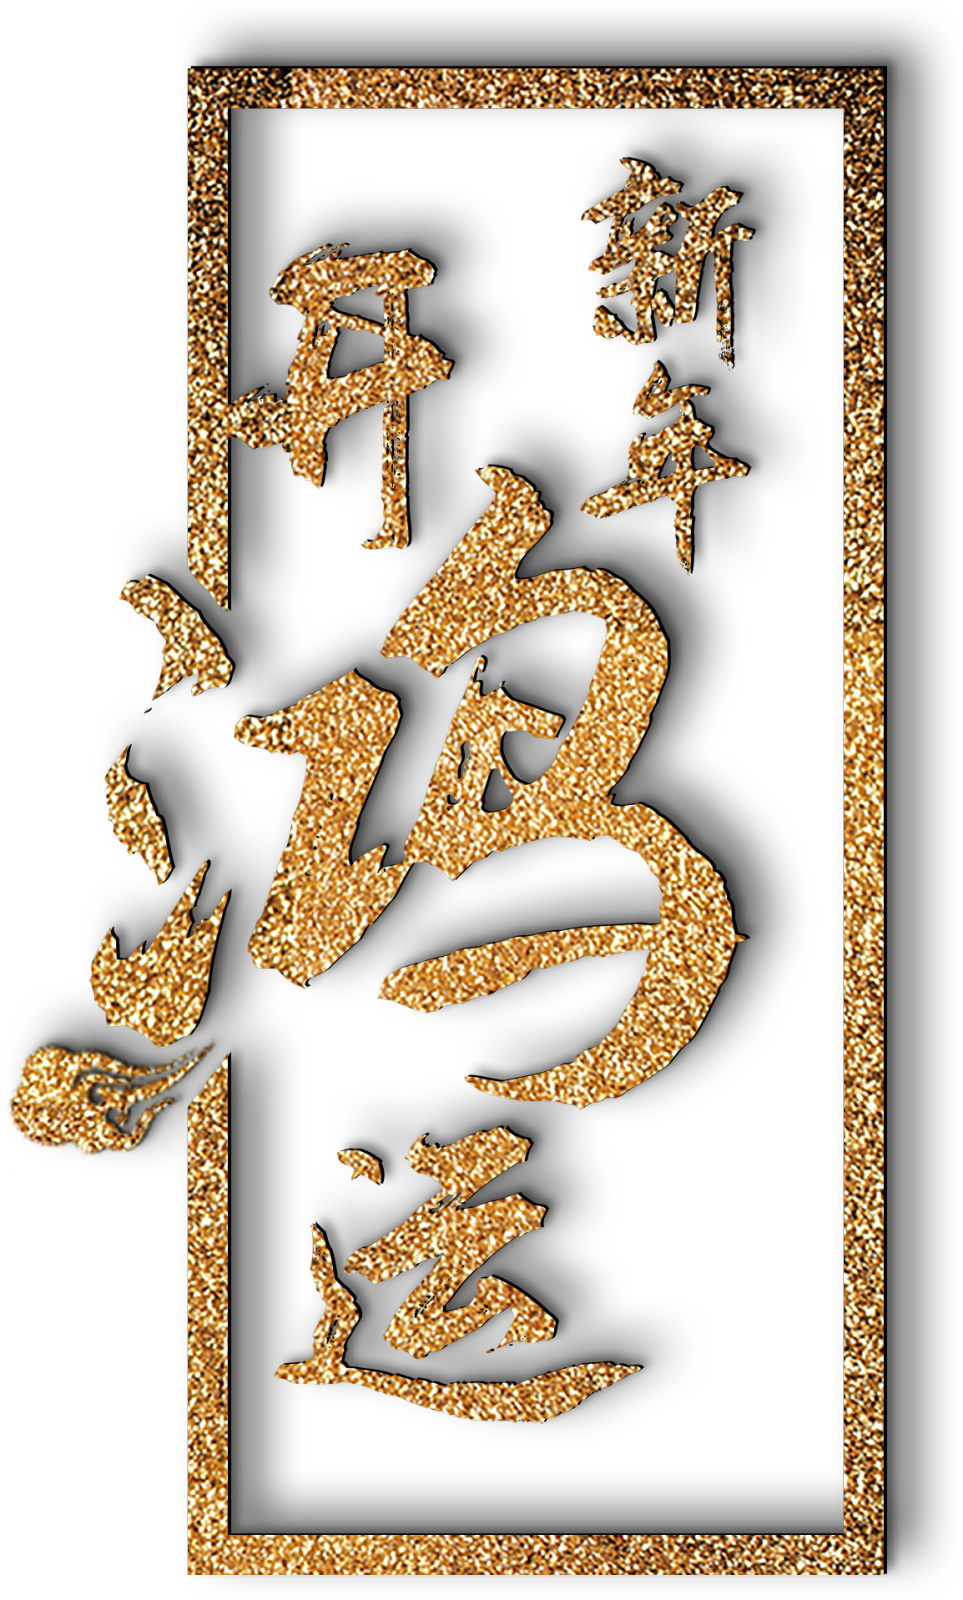 新年
开鸿运